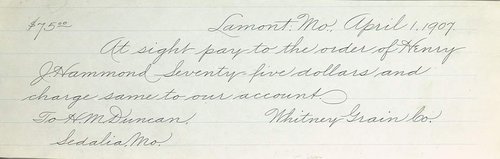 $75.00 Lamont. Mo. April 1, 1907.
At sight pay to the order of Henry
J Hammond Seventy-five dollars and
charge same to our account
To H. M Duncan. Whitney Grain Co.
Sedalia Mo.